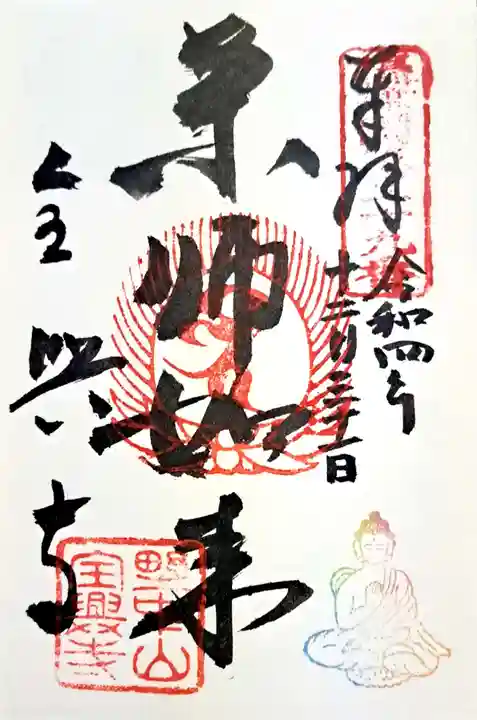 奉拝
令和四年
十二月三十一日
薬師如来
全興寺
野中山
全興寺